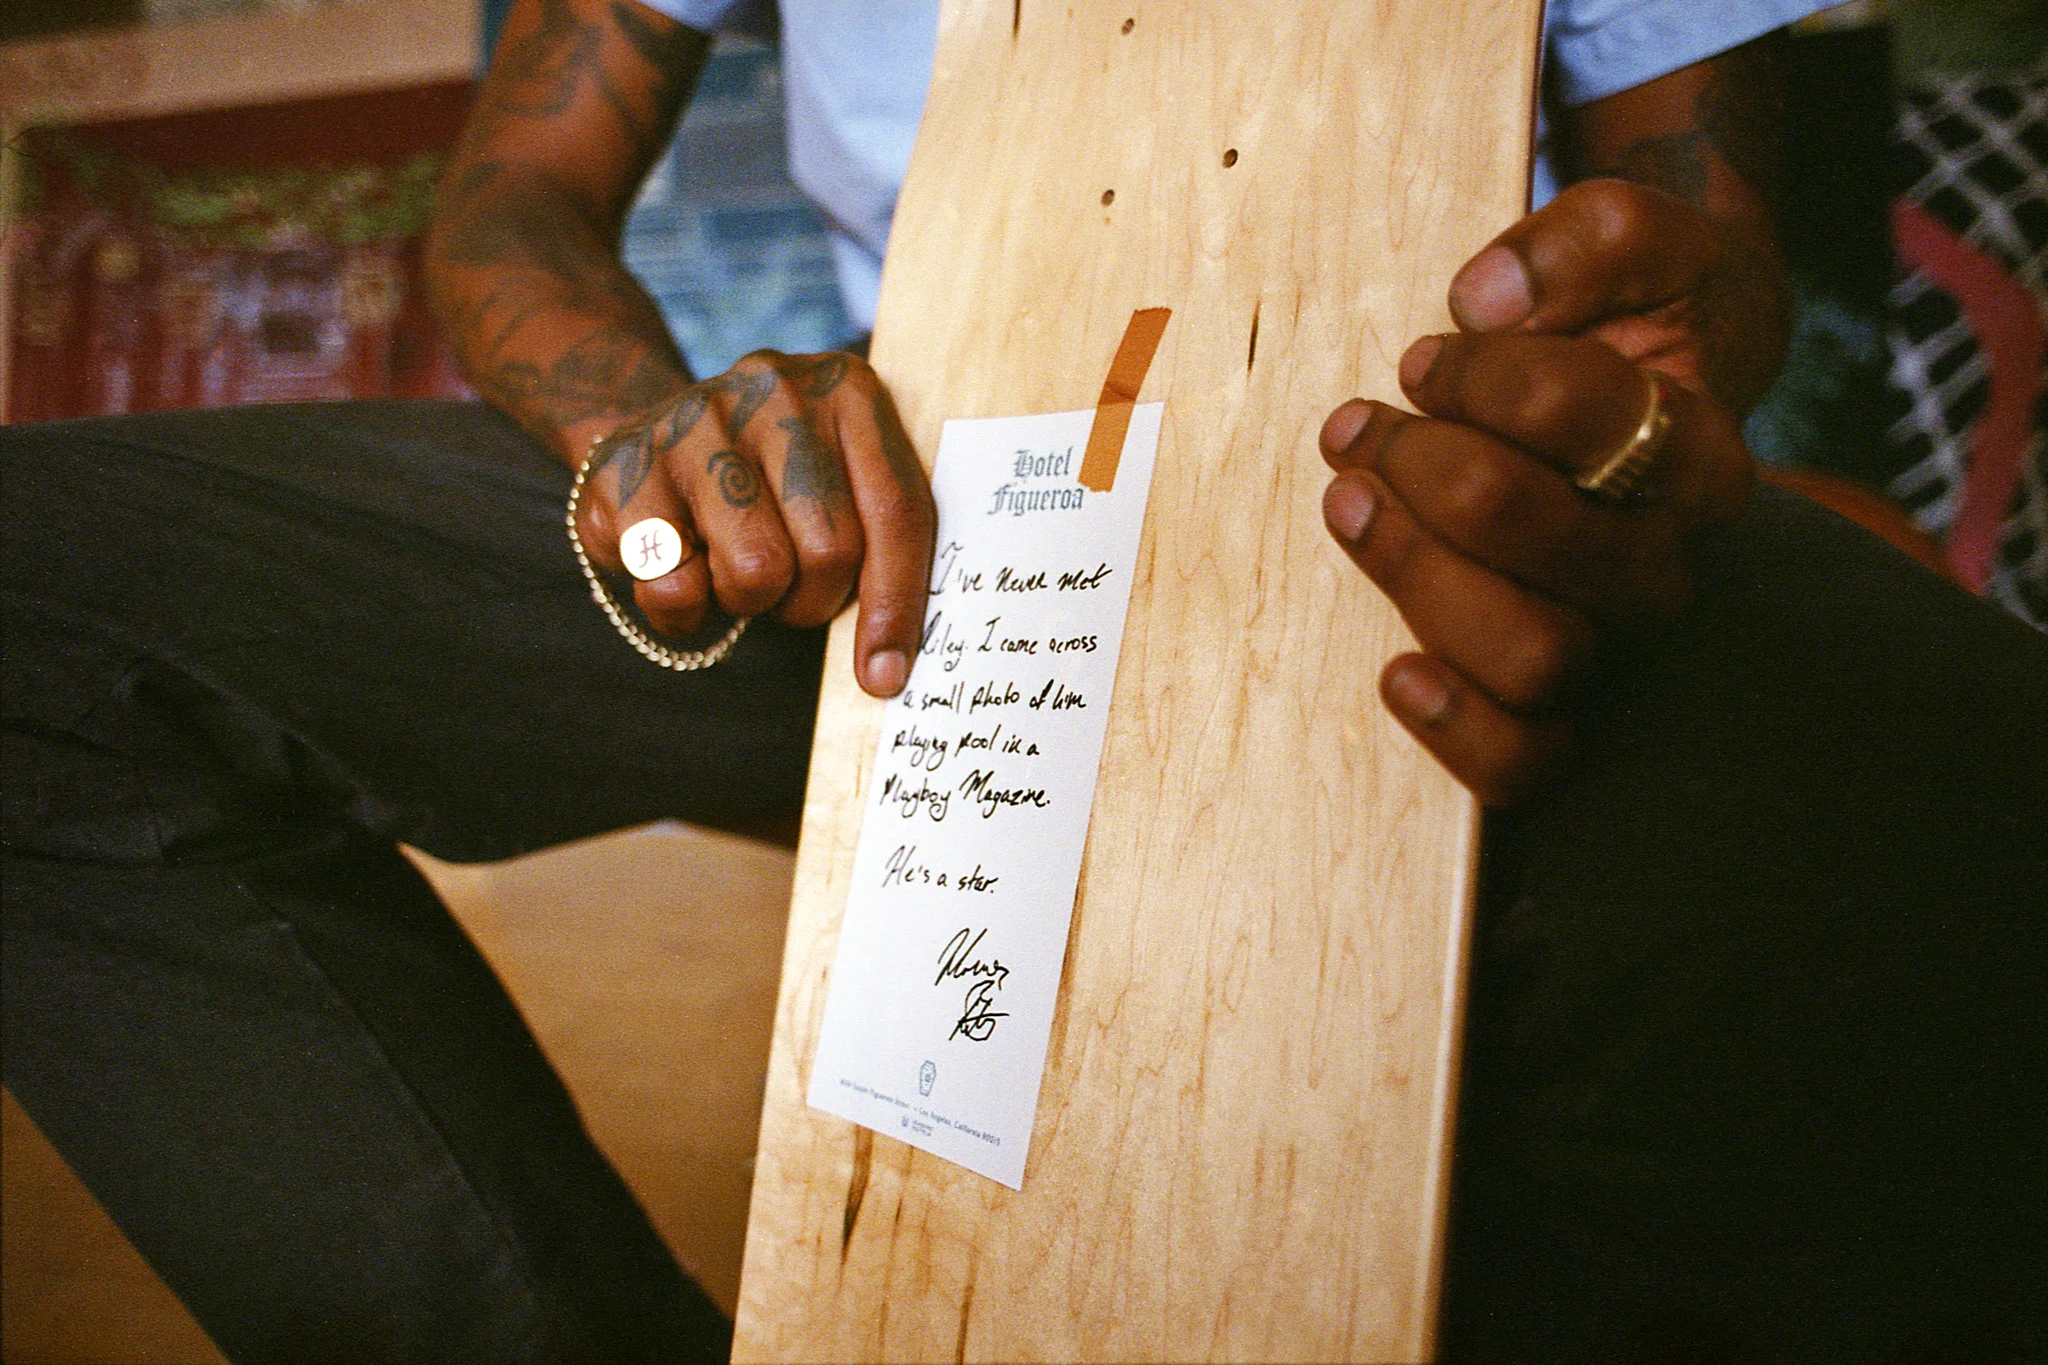 H
Hotel
Figueroa
I've never met
Riley. I came across
a small photo of him
playing pool in a
Playboy Magazine.
He's a star.
South Figueroa Street Los Angeles, California 90015